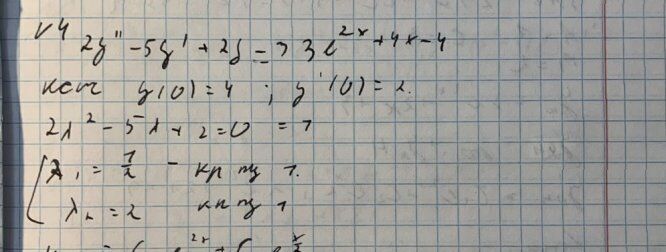 √4
2y'' - 5y' + 2y = 33e^{2x} + 4x - 4
y(0) = 4 ; y'(0) = 2.
2λ² - 5λ + 2 = 0 =>
λ₁ = 1/2 - кр 1.
λ₂ = 2 кр 1